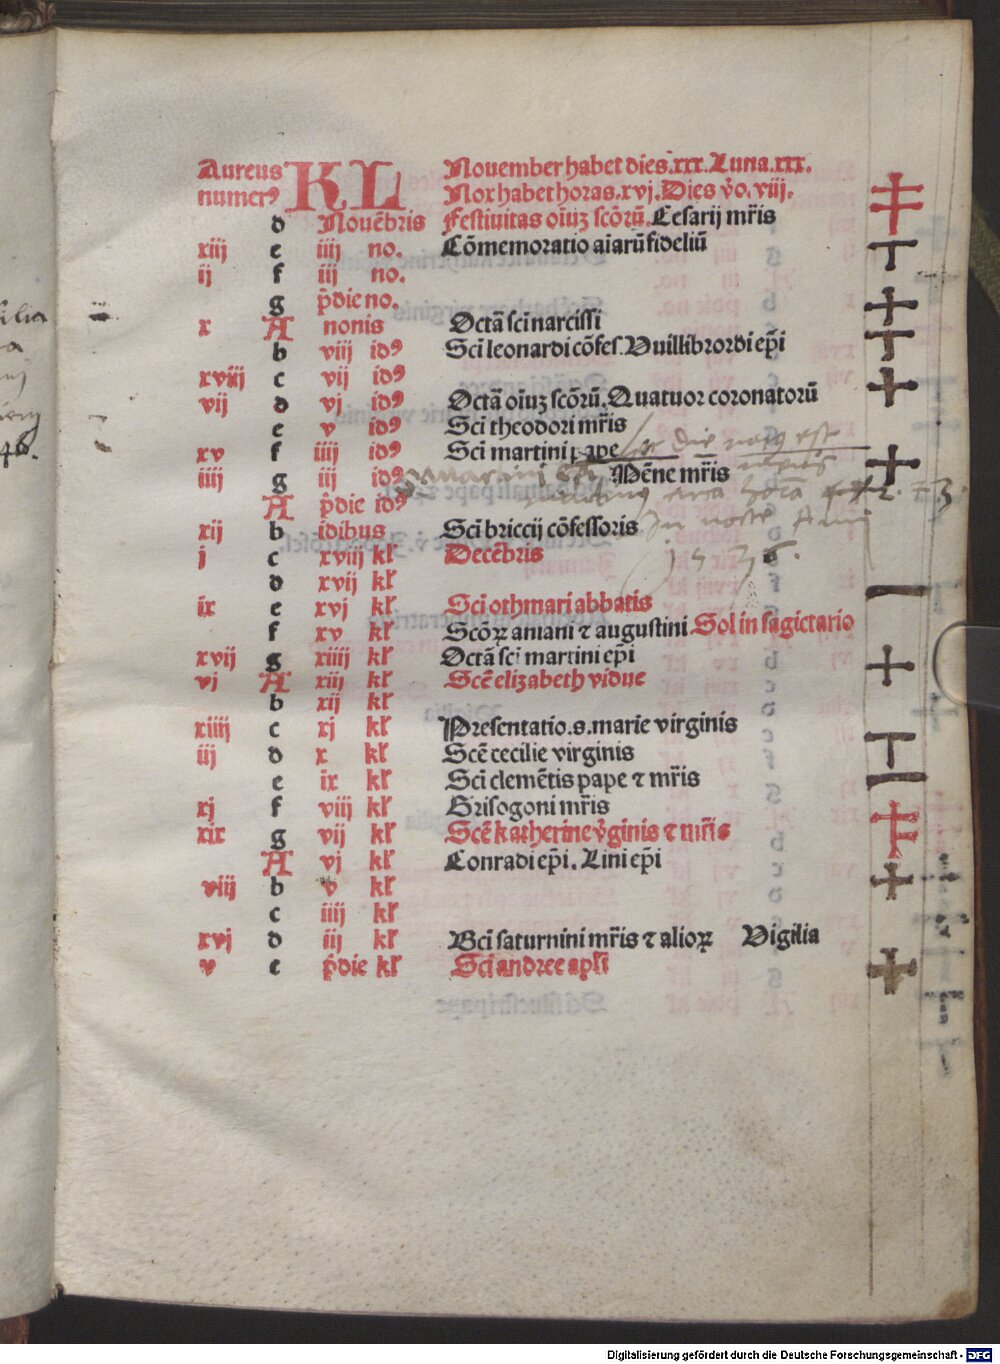 Aureus KL Nouember habet dies.xxx.Luna.xxx.
numerꝰ Nox habet horas.xvj.Dies v̊o.viij.
d Nouēbris Festiuitas oīuȝ scōrū.Cesarij mr̄is
xiij e iiij no. Cōmemoratio aīarū fideliū
ij f iij no.
g p̄die no.
x A nonis Octā sci narcissi
b viij idꝰ Sci leonardi cōfes.Vuillibrordi ep̄i
xviij c vij idꝰ
vij d vj idꝰ Octā oīuȝ scōrū.Quatuor coronatorū
e v idꝰ Sci theodori mr̄is
xv f iiij idꝰ Sci martini pape
iiij g iij idꝰ Mēne mr̄is
A p̄die idꝰ
xij b idibus Sci briccij cōfessoris
j c xviij kł Decēbris
d xvij kł
ix e xvj kł Sci othmari abbatis
f xv kł Scōꝝ aniani ⁊ augustini Sol in sagictario
xvij g xiiij kł Octā sci martini ep̄i
vj A xiij kł Scē elizabeth vidue
b xij kł
xiiij c xj kł Presentatio.s.marie virginis
iij d x kł Scē cecilie virginis
e ix kł Sci clemētis pape ⁊ mr̄is
xj f viij kł Grisogoni mr̄is
xix g vij kł Scē katherine v̊ginis ⁊ mr̄is
A vj kł Conradi ep̄i. Lini ep̄i
viij b v kł
c iiij kł
xvj d iij kł Sci saturnini mr̄is ⁊ alioꝝ Vigilia
v e p̄die kł Sci andree apłi
Digitalisierung gefördert durch die Deutsche Forschungsgemeinschaft - DFG